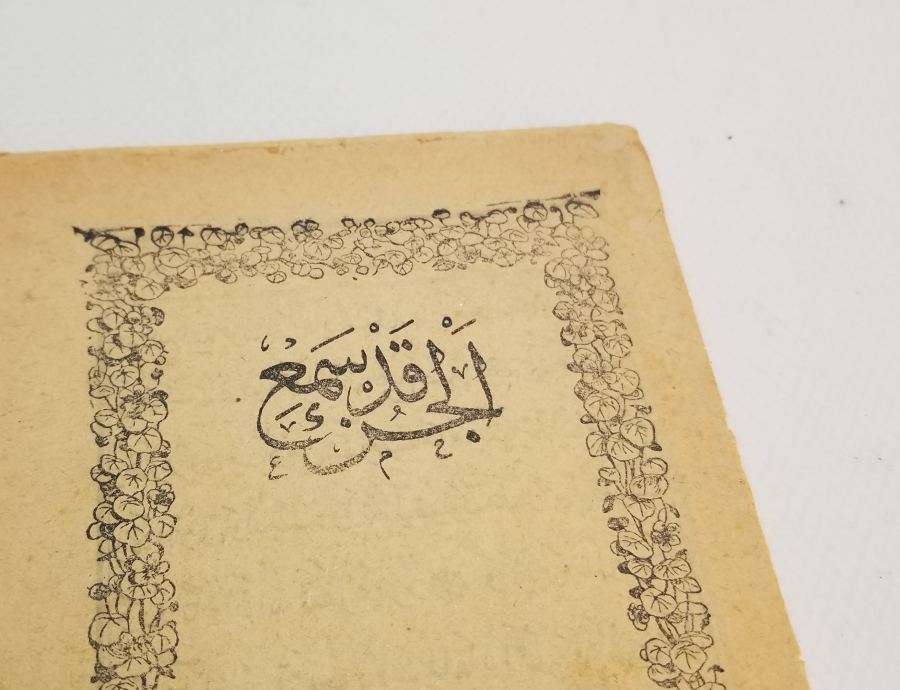 اَلْجُزْءُ قَدْ سَمِعَ